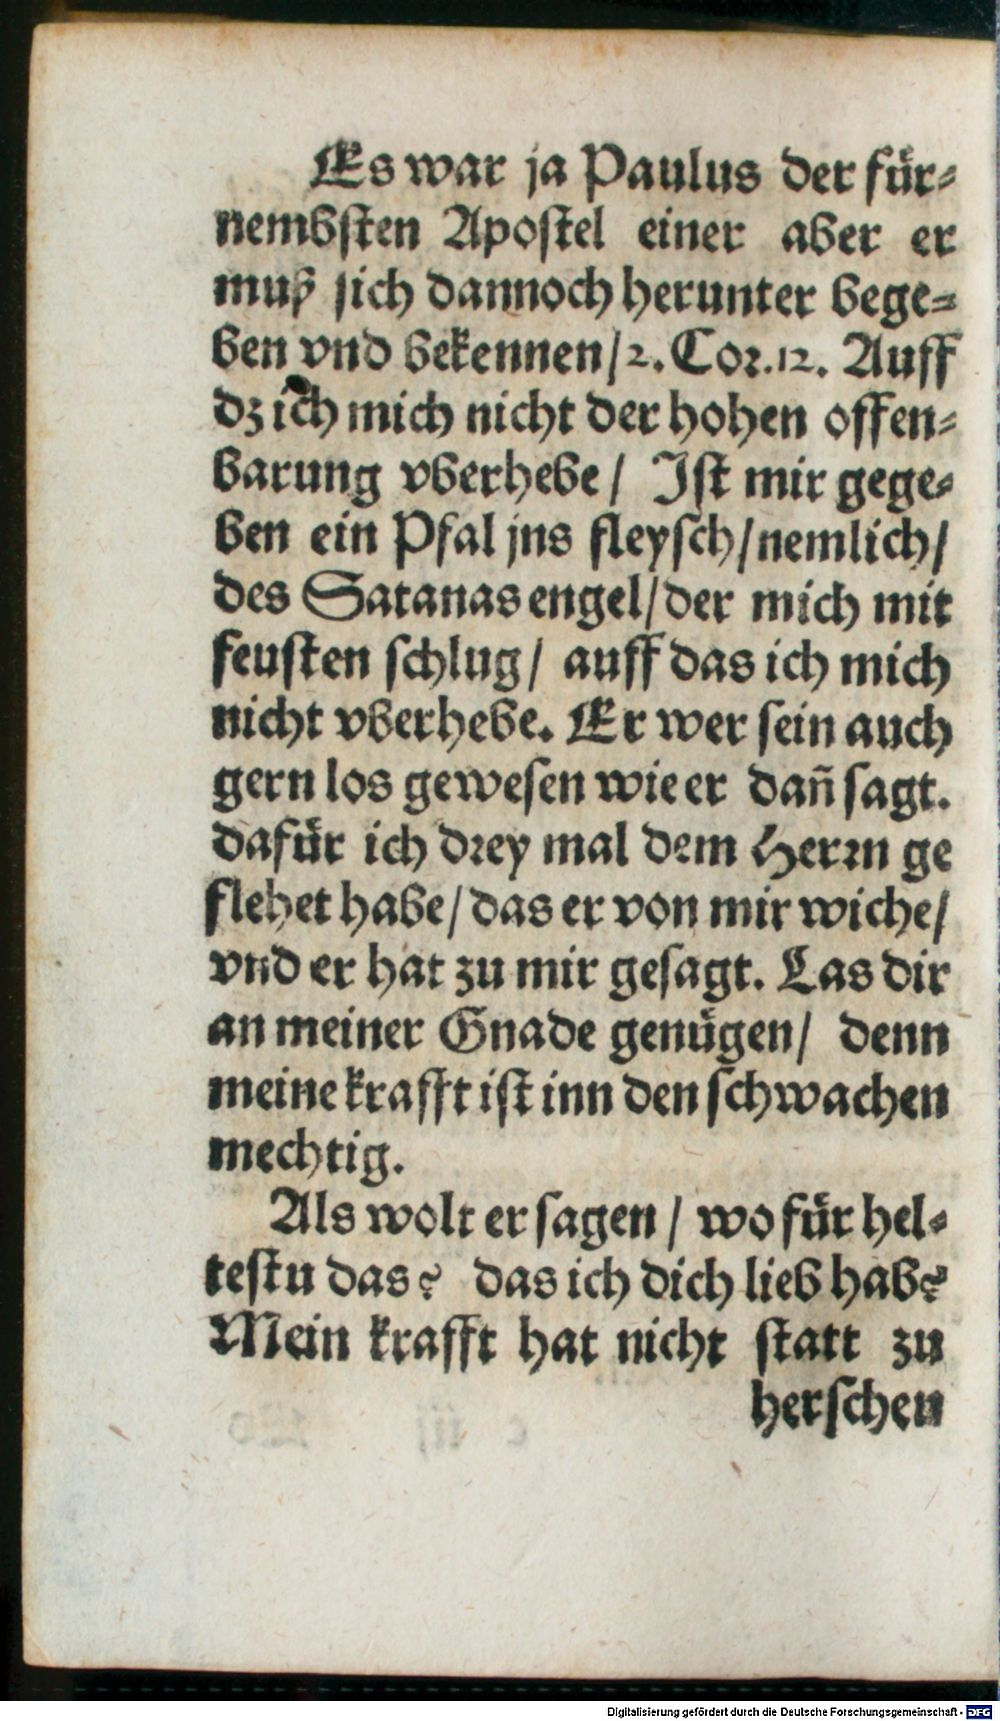 Es war ja Paulus der fuͤr⸗
nembſten Apoſtel einer aber er
muß ſich dannoch herunter bege⸗
ben vnd bekennen/2. Cor.12. Auff
dz ich mich nicht der hohen offen⸗
barung vberhebe/ Iſt mir gege⸗
ben ein Pfal jns fleyſch/nemlich/
des Satanas engel/der mich mit
feuſten ſchlug/ auff das ich mich
nicht vberhebe. Er wer ſein auch
gern los gewesen wie er dañ ſagt.
dafuͤr ich drey mal dem Herrn ge
flehet habe/das er von mir wiche/
vnd er hat zu mir geſagt. Las dir
an meiner Gnade genuͤgen/ denn
meine krafft iſt inn den ſchwachen
mechtig.
Als wolt er ſagen/ wo fuͤr hel⸗
teſtu das? das ich dich lieb hab?
Mein krafft hat nicht ſtatt zu
herſchen
Digitalisierung gefördert durch die Deutsche Forschungsgemeinschaft - DFG